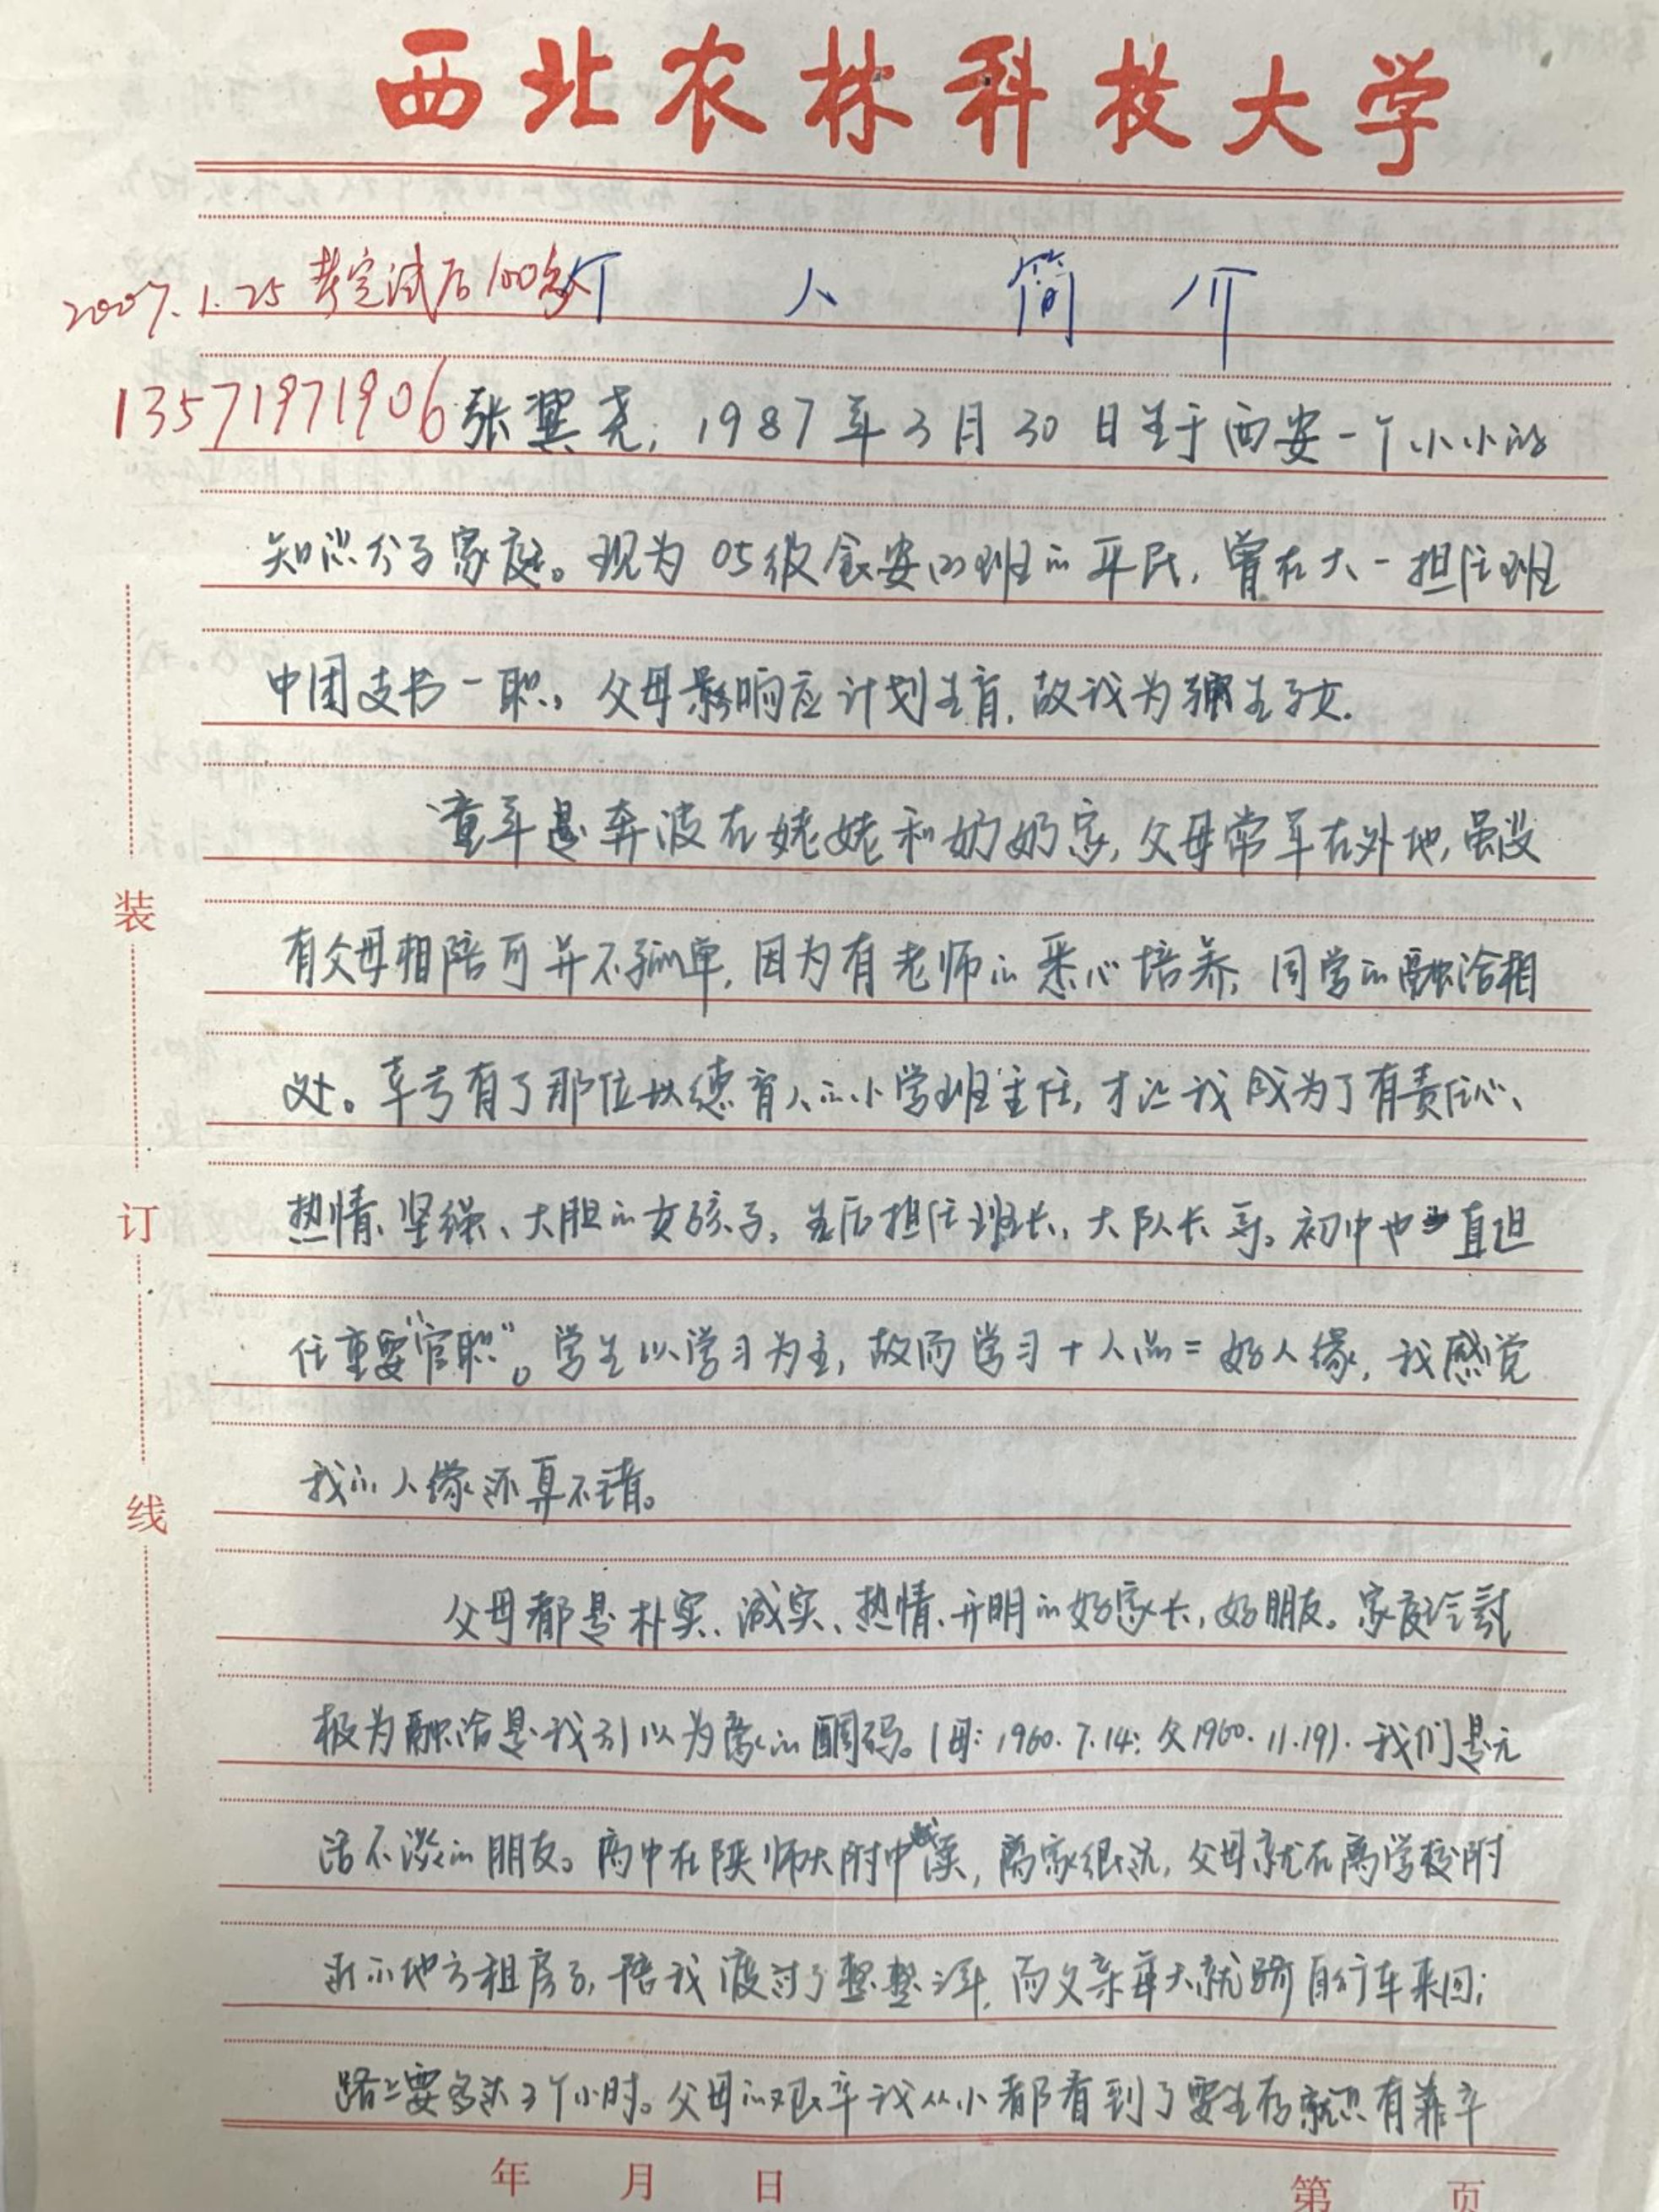 西北农林科技大学
2007.1.25 考完试后100名 个人简介
13571971906 张翼尧，1987年3月30日生于西安一个小小的
知识分子家庭。现为05级食安(2)班的平民，曾在大一担任班
中团支书一职，父母影响应计划生育，故我为独生子女.
童年是奔波在姥姥和奶奶家，父母常年在外地，虽没
有父母相陪可并不孤单，因为有老师的悉心培养，同学的融洽相
处。幸亏有了那位以德育人的小学班主任，才让我成为了有责任心、
热情、坚强、大胆的女孩子，先后担任班长、大队长等。初中也一直担
任重要“官职”。学生以学习为主，故而学习+人品=好人缘，我感觉
我的人缘还真不错。
父母都是朴实、诚实、热情、开明的好家长，好朋友。家庭气氛
极为融洽是我引以为豪的
(母：1960.7.14；父1960.11.19).我们是无
话不谈的朋友。高中在陕师大附中读，离家很远，父母就在离学校附
近的地方租房子，陪我度过了整整3年，而父亲每天就骑自行车来回；
路上要多达3个小时。父母的艰辛我从小都看到了要生存就只有靠辛
装
订
线
年 月 日
第 页